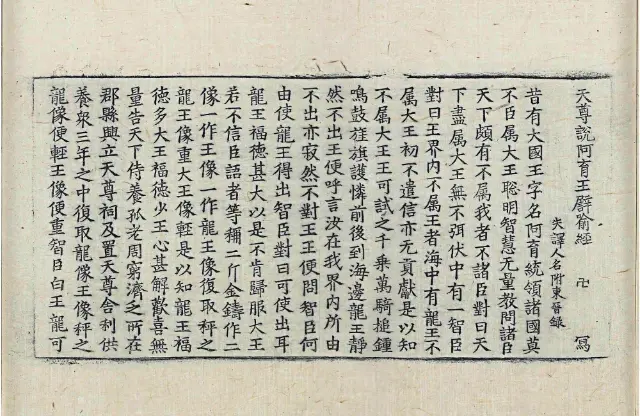 天尊說阿育王譬喻經 卍 寫
失譯人名附東晉錄
昔有大國王字名阿育統領諸國莫
不臣属大王聰明智慧无量教問諸臣
天下頗有不属我者不諸臣對曰天
下盡属大王無不弭伏中有一智臣
對曰王界内不属王者海中有龍王不
属大王初不遣信亦无貢獻是以知
不属大王王可試之千乘萬騎搥鍾
鳴鼓旌旗護憐前後到海邊龍王静
然不出王便呼言汝在我界内所由
不出亦寂然不對王王便問智臣何
由使龍王得出智臣對曰可使出耳
龍王福徳甚大以是不肯歸服大王
若不信臣語者等稱二斤金鑄作二
像一作王像一作龍王像復取秤之
龍王像重大王像輕是以知龍王福
徳多大王福徳少王心甚解歡喜無
量告天下侍養孤老周窮濟乏所在
郡縣興立天尊祠及置天尊舍利供
養衆三年之中復取龍像王像秤之
龍像便輕王像便重智臣白王龍可